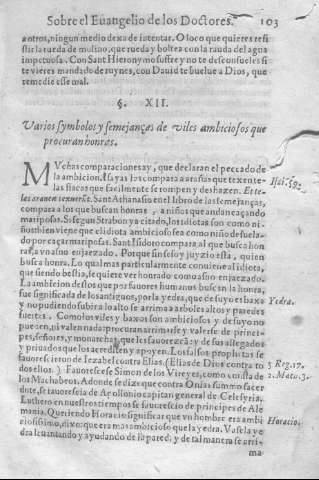 Sobre el Euangelio de los Doctores. 103
a otros, ningun medio dexa de intentar. O loco que quieres resi
stir la rueda de molino, que rueda y boltea con la rauda del agua
impetuosa. Con Sant Hieronymo sufre y no te desconsueles si
te vieres mandado de ruynes, con Dauid te buelue a Dios, que
remedie esse mal.
§. XII.
Varios symbolos y semejanças de viles ambiciosos que
procuran honras.
MVchas comparaciones ay, que declaran el peccado de
la ambicion. Isayas los compara a arañas que texen te-
las flacas que facilmente se rompen y deshazen. Et te-
las araneæ texuerunt. Sant Athanasio en el libro de las semejanças,
compara a los que buscan honras, a niños que andan caçando
mariposas. Si segun Strabon ya citado, los idiotas son como ni-
ños tambien viene que el idiota ambicioso sea como niño desuela-
do por caçar mariposas. Sant Isidoro compara al que busca hon
ra, a vn asno enjaezado. Porque sin seso y juyzio esta, quien
busca honra. Lo qual mas particularmente conuiene al idiota,
que siendo bestia, se quiere ver honrado como asno enjaezado.
La ambicion destos que por fauores humanos buscan la honra,
fue significada de los antiguos, por la yedra, que de suyo es baxa
y no pudiendo subir a lo alto se arrima a arboles altos y paredes
fuertes. Como los viles y baxos son ambiciosos y de suyo no
pueden, ni valen nada: procuran arrimarse y valerse de princi-
pes, señores, y monarchas, que les fauorezcan y de sus allegados
y priuados que los acrediten y apoyen. Los falsos prophetas se
fauorescieron de Iezabel contra Elias. (Elias de Dios contra to
dos ellos.) Fauorescese Simon de los Virreyes, como consta de
los Machabeos. Adonde se dize que contra Onias summo sacer
dote, se fauorescia de Apolonio capitan general de Celesyria.
Luthero en nuestros tiempos se fauorescio de principes de Ale
mania. Queriendo Horacio significar que vn hombre era ambi
ciosissimo, dixo: que era mas ambicioso que la yedra. Vase la ye
dra leuantando y ayudando de la pared: y de tal manera se arri-
ma
Isai. 59.
Yedra.
3 Reg. 17.
2. Mach. 3.
Horacio.